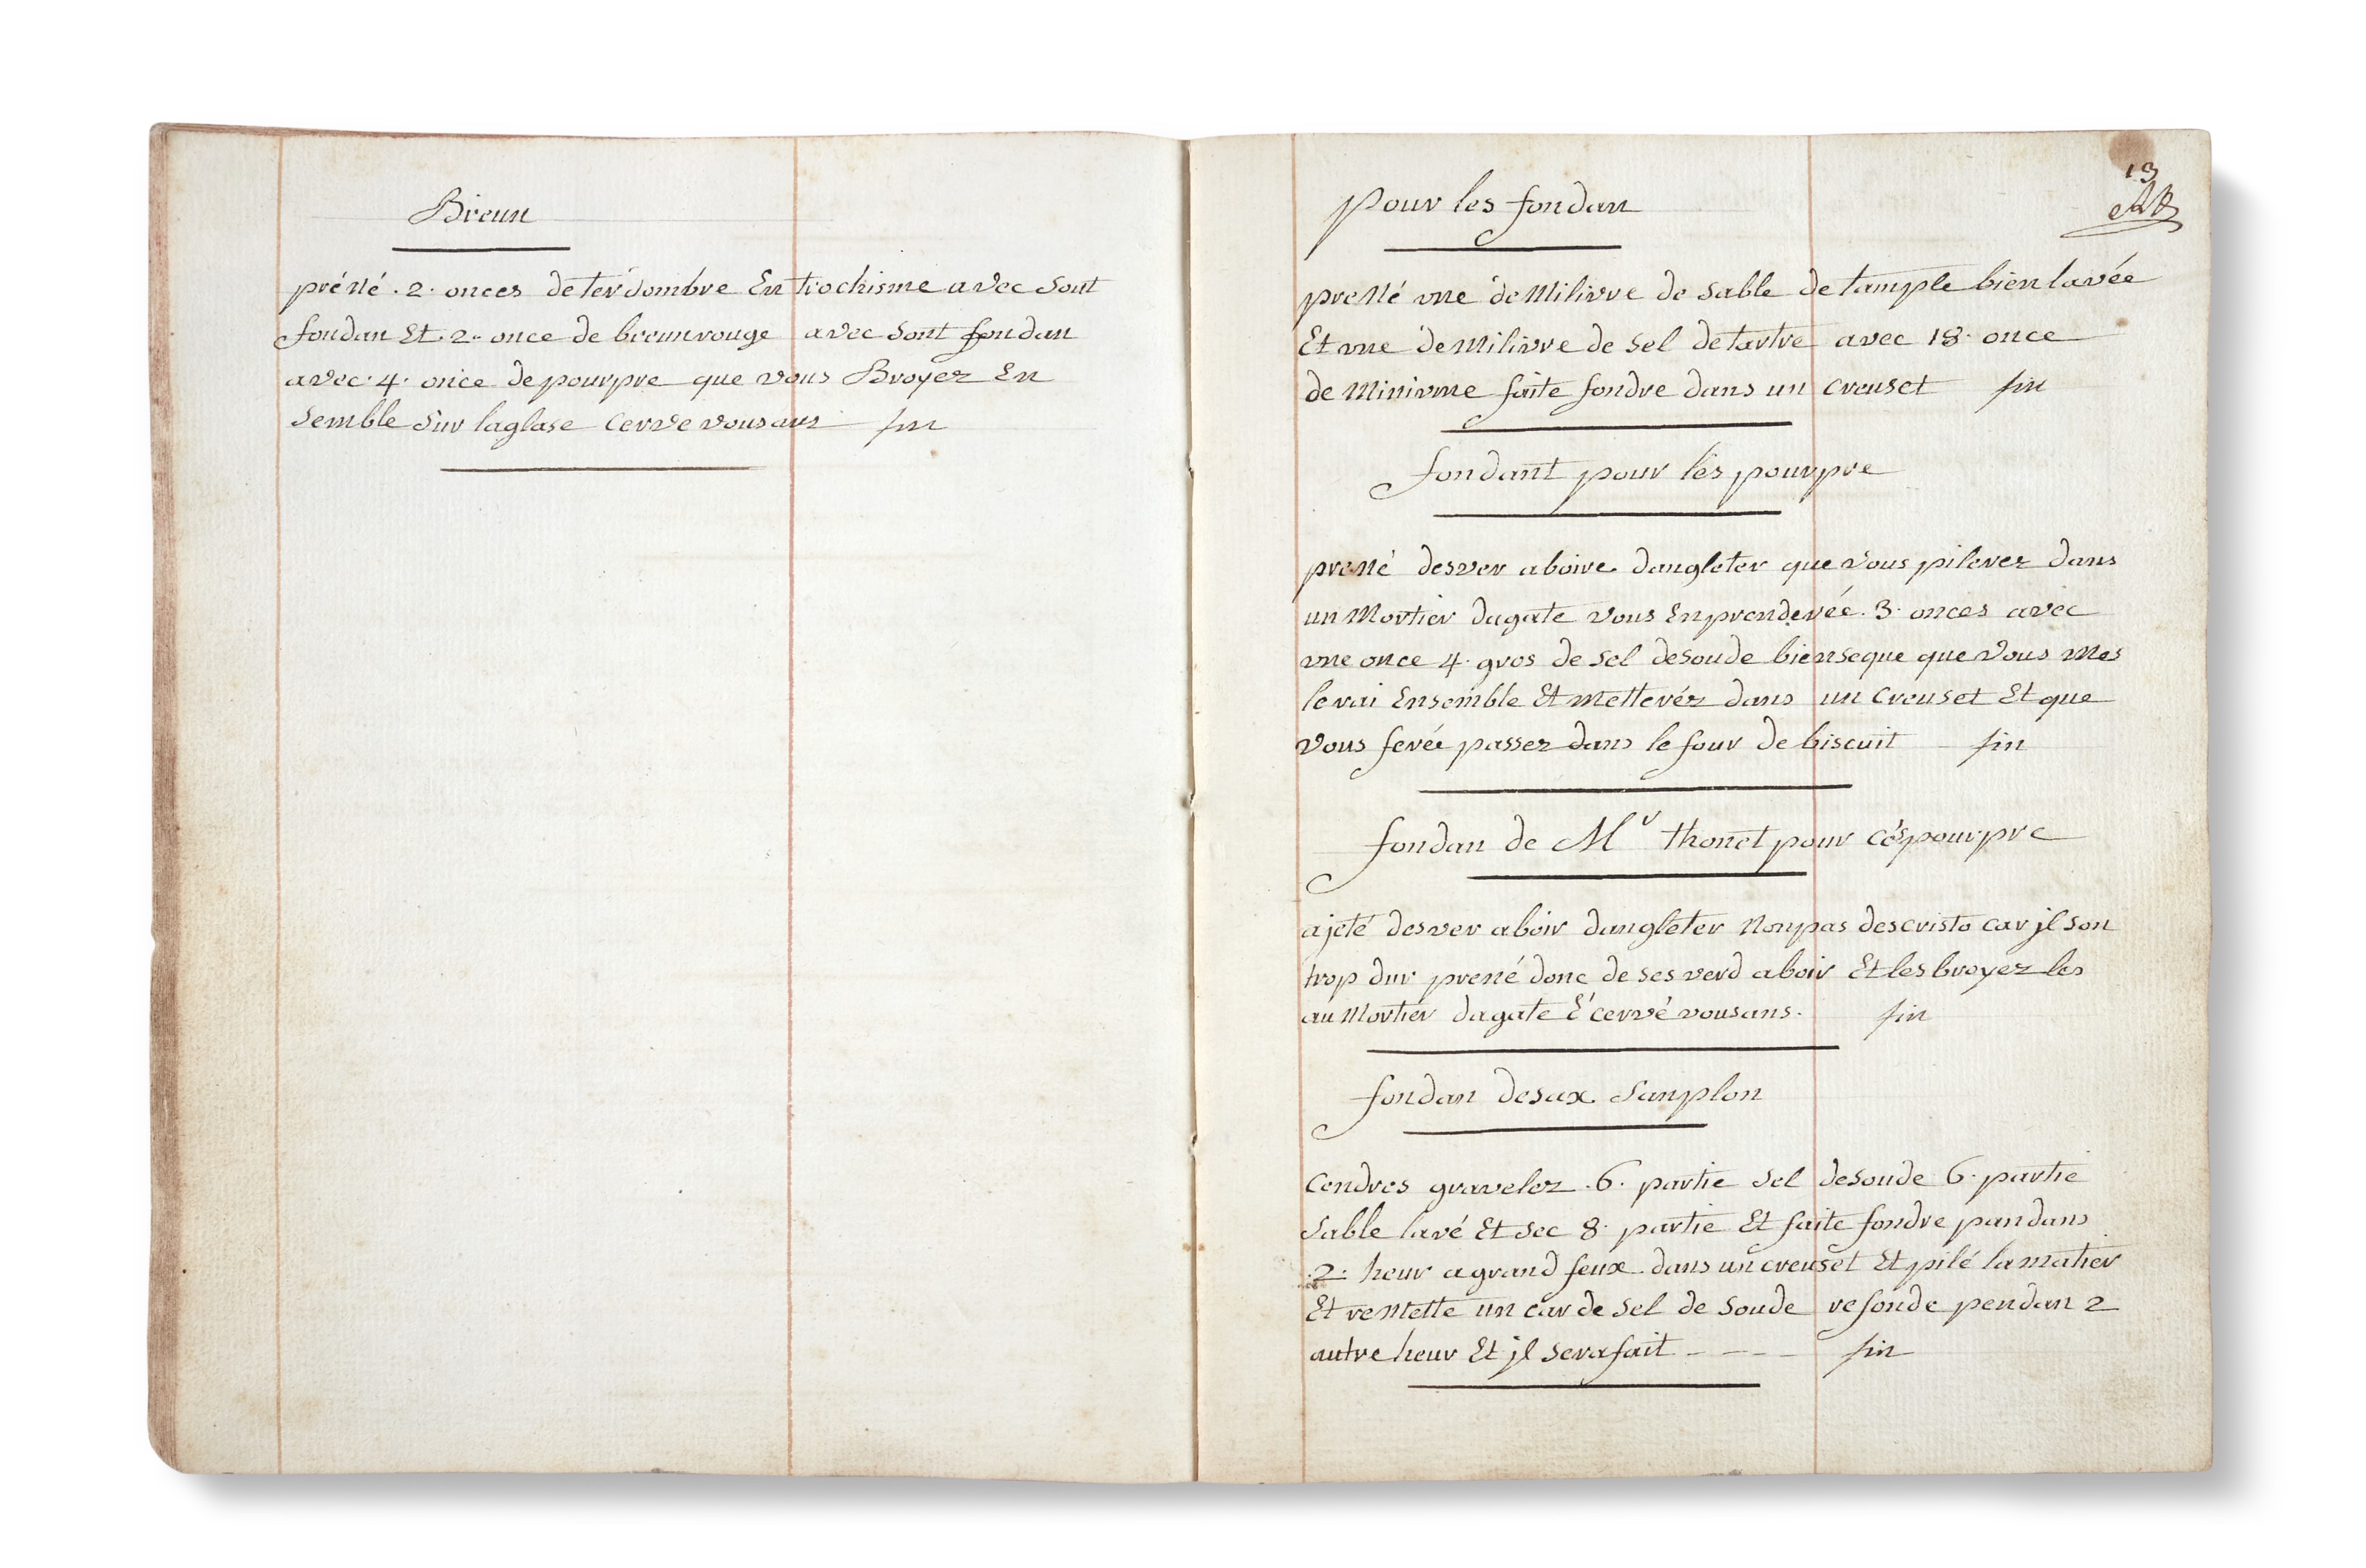 Breun
préné . 2 . onces de ter dombre En trochisme avec sont
fondan Et . 2 . once de breun rouge avec sont fondan
avec . 4 . once de pourpre que vous Broyez En
semble sur laglase cerve vous aus fin
13
AB
pour les fondan
prené une demilivre de sable detample bien lavée
Et une demilivre de sel detartre avec 18 . once
de miniume faite fondre dans un creuset fin
fondant pour les pourpre
prené desver aboire dangleter que vous pilerez dans
un mortier dagate vous Enprenderée . 3 . onces avec
une once 4 . gros de sel desoude bienseque que vous mes
lerai Ensemble Et metteréz dans un creuset Et que
vous feréé passez dans le four de biscuit fin
fondan de Mr thonet pour cés pourpre
ajeté desver aboir dangleter nonpas descristo car jl son
trop dur prené donc de ses verd aboir Et les broyez les
au mortier dagate É cervé vousans . fin
fondan desax sanplon
cendres gravelez . 6 . partie sel desoude 6 . partie
sable lavé Et sec 8 . partie Et faite fondre pandans
. 2 . heur agrand feux dans un creuset Et pilé lamatier
Et remette un car de sel de soude refonde pendan 2
autre heur Et jl serafait - - - - fin